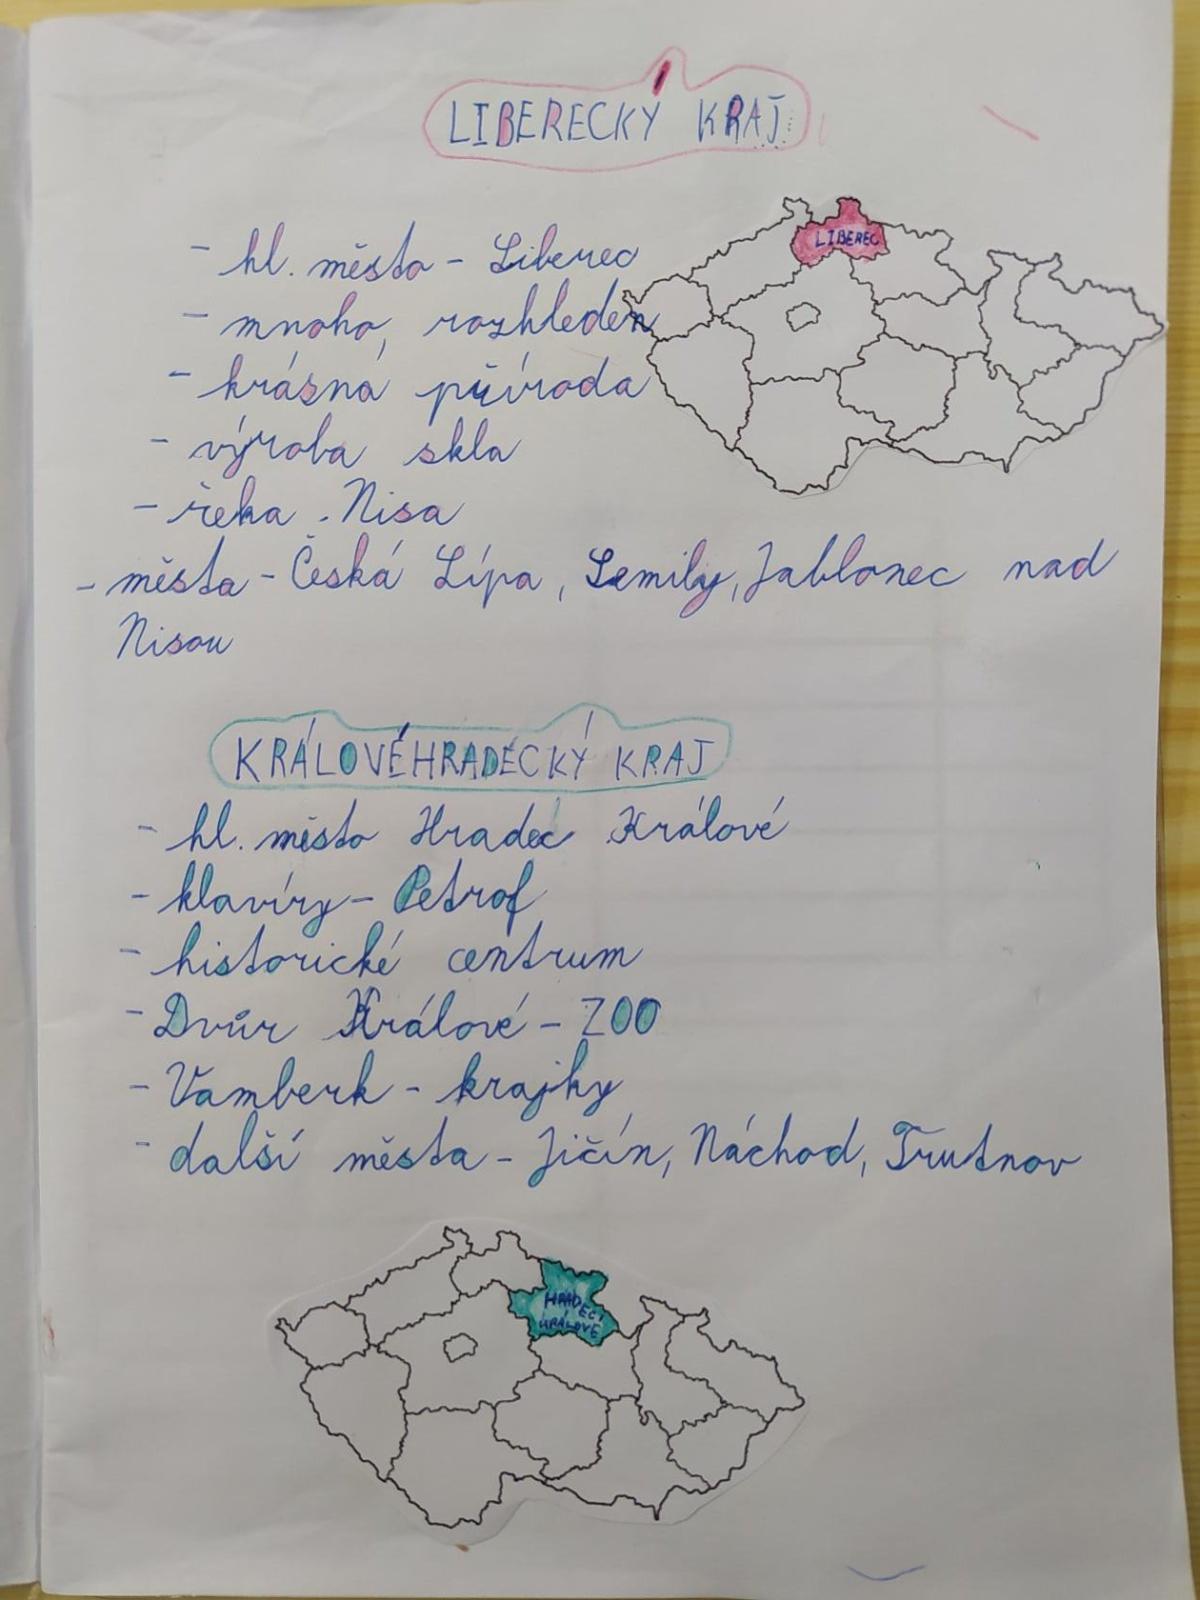 LIBERECKÝ KRAJ
- hl. město - Liberec
LIBEREC
- mnoho rozhleden
- krásná příroda
- výroba skla
- řeka Nisa
- města - Česká Lípa, Semily, Jablonec nad
Nisou
KRÁLOVÉHRADECKÝ KRAJ
- hl. město Hradec Králové
- klavíry - Petrof
- historické centrum
- Dvůr Králové - ZOO
- Vamberk - krajky
- další města - Jičín, Náchod, Trutnov
HRADEC
KRÁLOVÉ